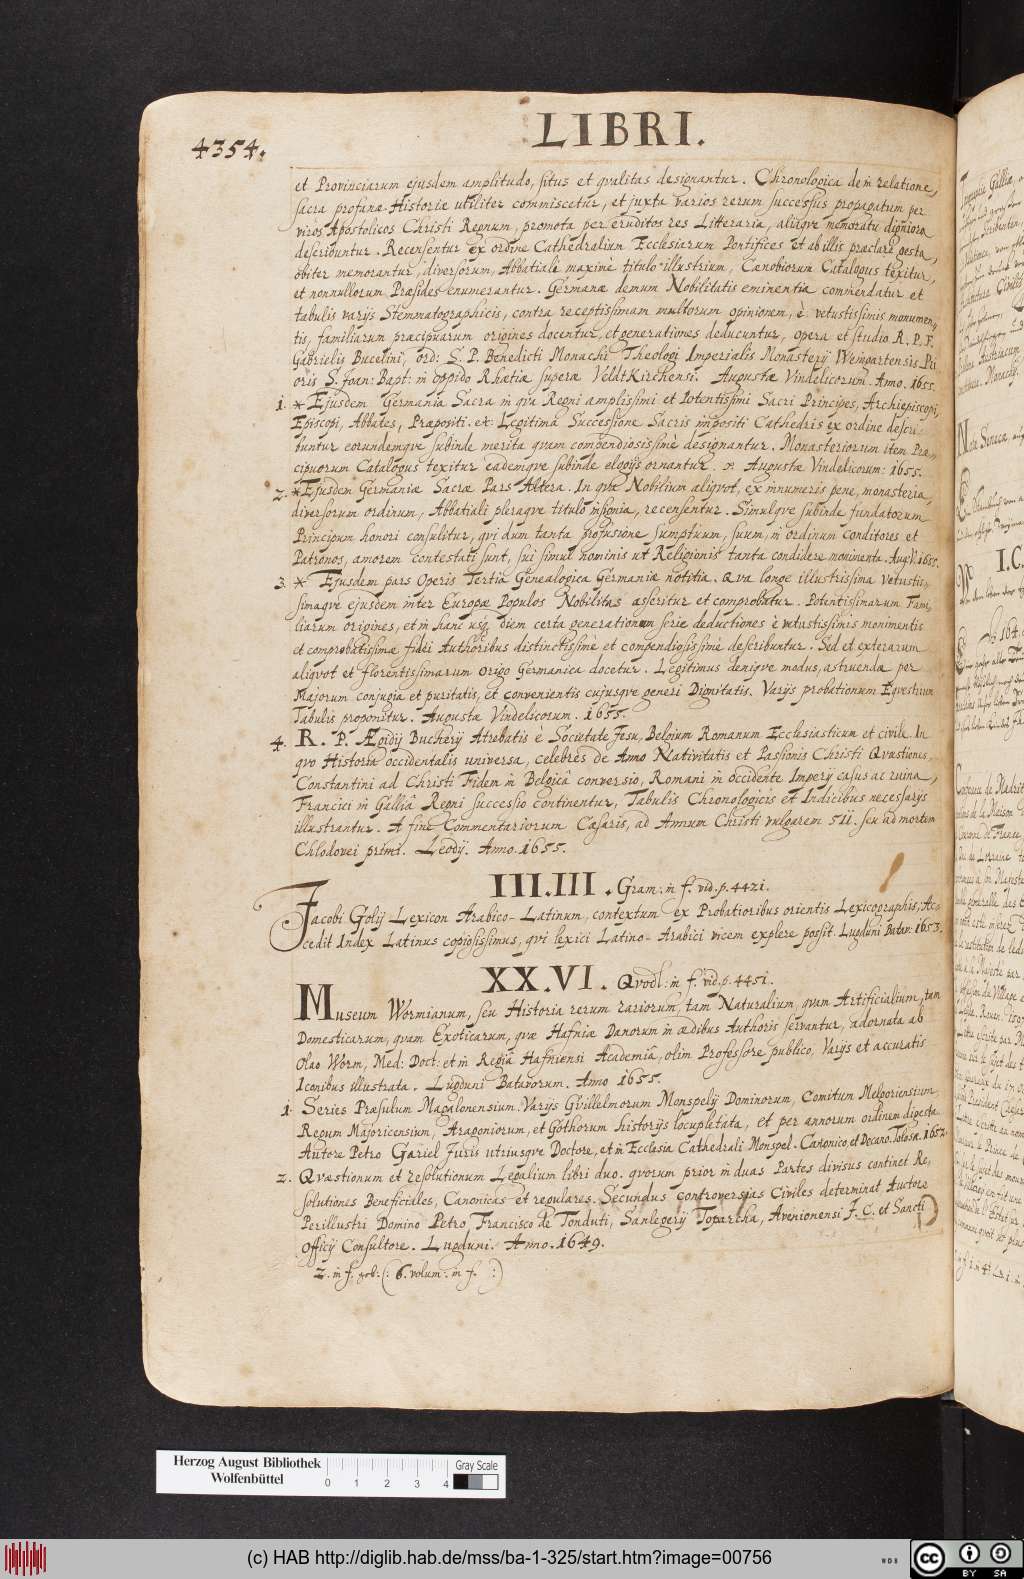 4354.
LIBRI.
et Provinciarum ejusdem amplitudo, situs et qvalitas designantur. Chronologica dem̄ relatione,
sacra profanæ Historiæ utiliter commiscetur, et juxta varios rerum successus propagatum per
viros Apostolicos Christi Regnum, promota per eruditos res Litteraria, aliaqve memoratu digniora
describuntur. Recensentur ex ordine Cathedralium Ecclesiarum Pontifices et ab illis præclarè gesta,
obiter memorantur, diversorum, Abbatiali maximè titulo illustrium, Cœnobiorum Catalogus texitur,
et nonnullorum Præsides enumerantur. Germanæ demum Nobilitatis eminentia commendatur et
tabulis varijs Stemmatographicis, contra receptissimam multorum opinionem, è vetustissimis monumen,
tis, familiarum præcipuarum origines docentur, et generationes deducuntur, opera et studio R. P. F.
Gabrielis Bucelini, Ord: S. P. Benedicti Monachi Theologi Imperialis Monasterij Weingartensis Pri
oris S. Joan: Bapt: in oppido Rhetiæ superæ VeldtKirchensi. Augustæ Vindelicorum. Anno. 1655.
1. * Ejusdem Germania Sacra in qva Regni amplissimi et Potentissimi Sacri Principes, Archiepiscopi,
Episcopi, Abbates, Præpositi. etc Legitima Successione Sacris impositi Cathedris ex ordine descri
buntur eorundemqve subinde merita qvam compendiosissimè designantur. Monasteriorum item Præ,
cipuorum Catalogus texitur eademqve subinde elogijs ornantur. Augustæ Vindelicorum: 1655.
2. * Ejusdem Germaniæ Sacræ Pars Altera. In qva Nobilium aliqvot, ex innumeris pene, monasteria,
diversorum ordinum, Abbatiali pleraqve titulo insignia, recensentur. Simulqve subinde fundatorum
Principum honori consulitur, qvi dum tanta profusione sumptuum, suum, in ordinum conditores et
Patronos, amorem contestati sunt, sui simul nominis ut Religionis tanta condidere monimenta. Aug V. 1655.
3. * Ejusdem pars Operis Tertia Genealogica Germaniæ notitia. Qva longe illustrissima vetustis,
simaqve ejusdem inter Europæ Populos Nobilitas asseritur et comprobatur. Potentissimarum Fami,
liarum origines, et in hanc usq diem certa generationum serie deductiones è vetustissimis monimentis
et comprobatissimæ fidei Authoribus distinctissimè et compendiosissimè describuntur. Sed et exterarum
aliqvot et florentissimarum origo Germanica docetur. Legitimus deniqve modus, astruendæ per
Majorum conjugia et puritatis, et convenientis cujusqve generi Dignitatis. Varijs probationum Eqvestrium
Tabulis proponitur. Augusta Vindelicorum. 1655.
4. R. P. Ægidij Bucherij Atrebatis è Societate Jesu, Belgium Romanum Ecclesiasticum et civile. In
qvo Historia occidentalis universa, celebres de Anno Nativitatis et Passionis Christi Qvæstiones,
Constantini ad Christi Fidem in Belgicâ conversio, Romani in occidente Imperij casus ac ruina,
Francici in Galliâ Regni successio continentur, Tabulis Chronologicis et Indicibus necessarijs
illustrantur. A fine Commentariorum Cæsaris, ad Annum Christi vulgarem 511. seu ad mortem
Chlodovei primi. Leodij. Anno. 1655.
III.III. Gram: in f. vid. p. 4421.
Jacobi Golij Lexicon Arabico-Latinum, contextum ex Probatioribus orientis Lexicographis, Ac
cedit Index Latinus copiosissimus, qvi lexici Latino-Arabici vicem explere possit. Lugduni Batav: 1653.
XX.VI. Qvodl: in f. vid. p. 4451.
Museum Wormianum, seu Historia rerum rariorum, tam Naturalium, qvam Artificialium, tam
Domesticarum, qvam Exoticarum, qvæ Hafniæ Danorum in ædibus Authoris servantur, adornata ab
Olao Worm, Med: Doct: et in Regiâ Hafniensi Academiâ, olim Professore publico, Varijs et accuratis
Iconibus illustrata. Lugduni Batavorum. Anno 1655.
1. Series Præsulum Magalonensium. Varijs Gvillelmorum Monspelij Dominorum, Comitum Melgoriensium,
Regum Majoricensium, Aragoniorum, et Gothorum historijs locupletata, et per annorum ordinem digesta
Autore Petro Gariel Juris utriusqve Doctore, et in Ecclesia Cathedrali Monspel. Canonico et Decano. Tolosæ. 1652.
2. Qvæstionum et resolutionum Legalium libri duo. qvorum prior in duas Partes divisus continet Re,
solutiones Beneficiales, Canonicas et regulares. Secundus controversias Civiles determinat Auctore
Perillustri Domino Petro, Francisco de Tonduti, Sanlegerij Toparcha, Avenionensi J. C. et Sancti
Officij Consultore. Lugduni. Anno. 1649.
2. in f. (: 6. volum: in f. :)
Herzog August Bibliothek
Wolfenbüttel
0 1 2 3 4
Gray Scale
(c) HAB http://diglib.hab.de/mss/ba-1-325/start.htm?image=00756
WDB
cc BY SA